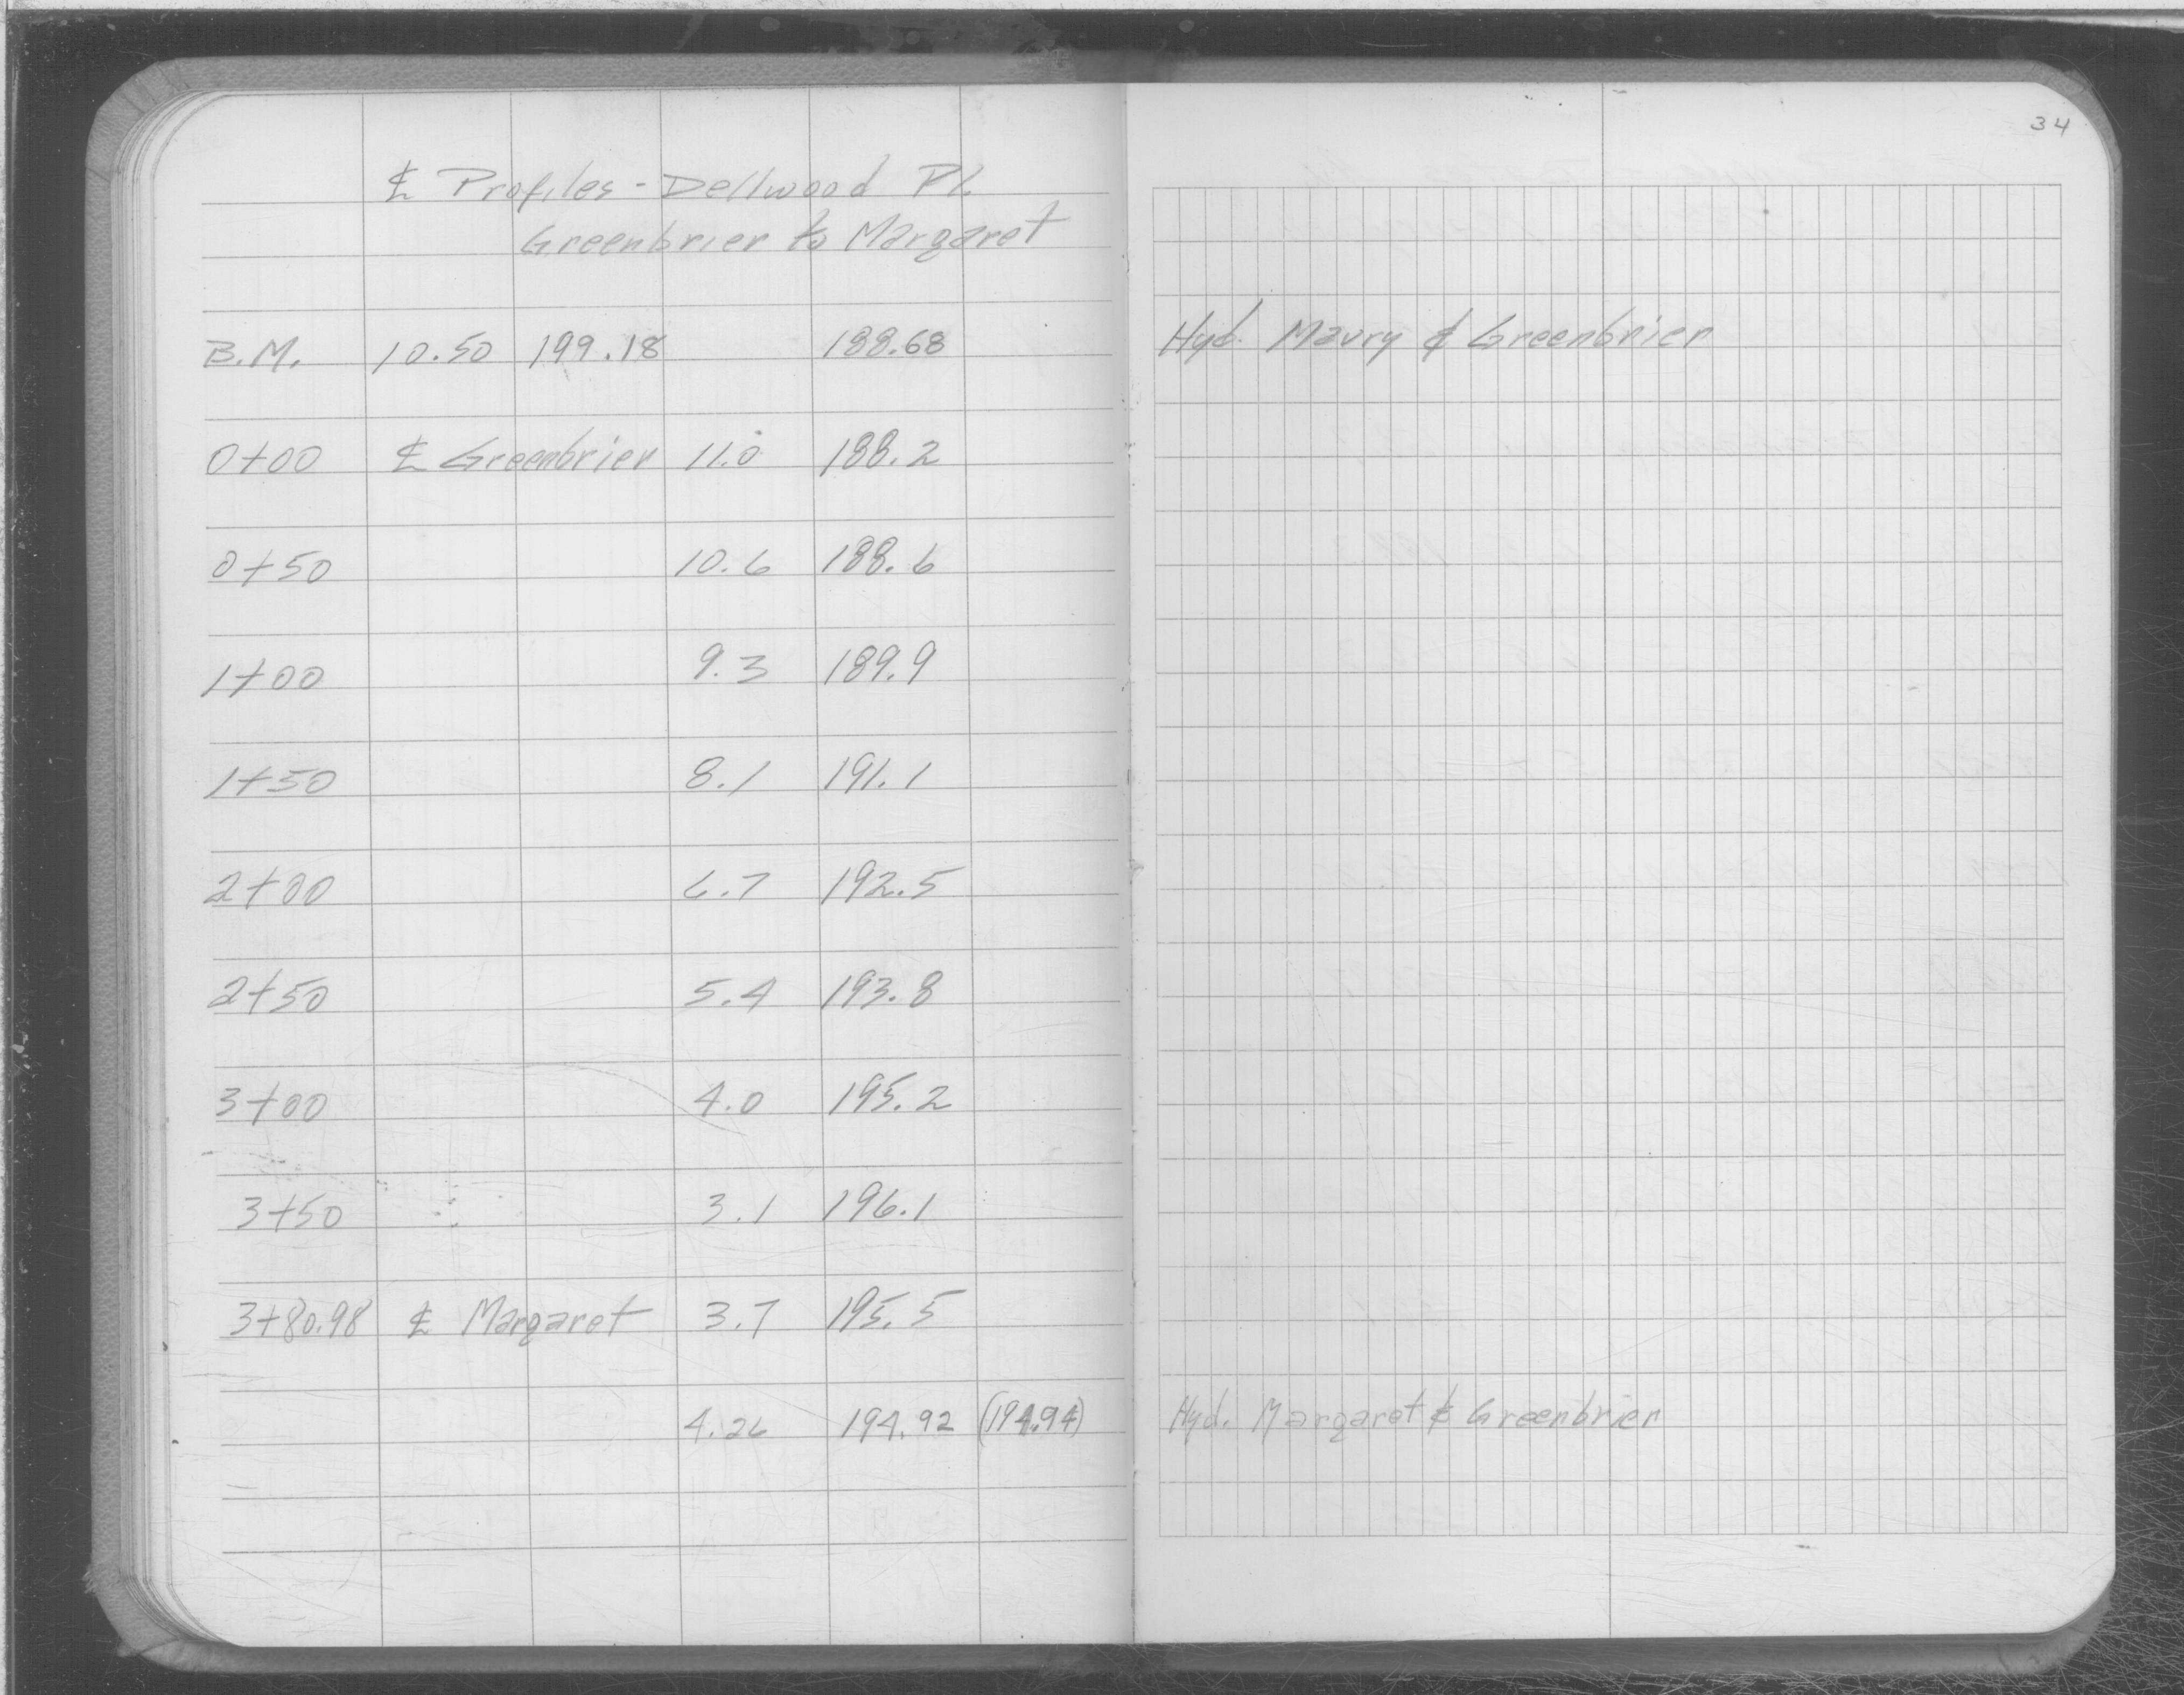 34
℄ Profiles - Dellwood Pl.
Greenbrier to Margaret
B.M. 10.50 199.18 188.68 Hyd. Maury & Greenbrier
0+00 ℄ Greenbrier 11.0 188.2
0+50 10.6 188.6
1+00 9.3 189.9
1+50 8.1 191.1
2+00 6.7 192.5
2+50 5.4 193.8
3+00 4.0 195.2
3+50 3.1 196.1
3+80.98 ℄ Margaret 3.7 195.5
4.26 194.92 (194.94) Hyd. Margaret & Greenbrier